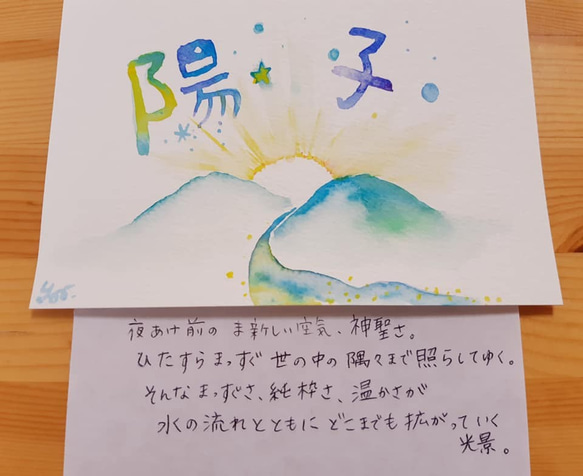 陽子
夜あけ前の ま新しい空気、神聖さ。
ひたすらまっすぐ 世の中の 隅々まで 照らしてゆく。
そんなまっすぐさ、純粋さ、温かさが
水の流れとともに どこまでも 拡がっていく
光景。